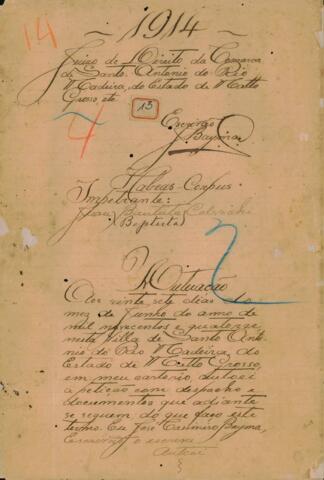 14
~ 1914 ~
Juizo de Direito da Comarca
de Santo Antonio do Rio
Madeira, do Estado de Matto
Grosso, etc.
13
4
Escrivão
J. Bayma
Habeas-Corpus
Impetrante:
João Bautista
(Baptista)
2
Autuação
Aos vinte sete dias do
mez de Junho do anno de
mil novecentos e quatorze
nesta Villa de Santo Anto-
nio do Rio Madeira, do
Estado de Matto Grosso,
em meu cartorio, autoei
a petição com despacho e
documentos que adiante
se seguem do que faço este
termo. Eu José Casimiro Bayma,
Escrivão o escrevi
Autoei